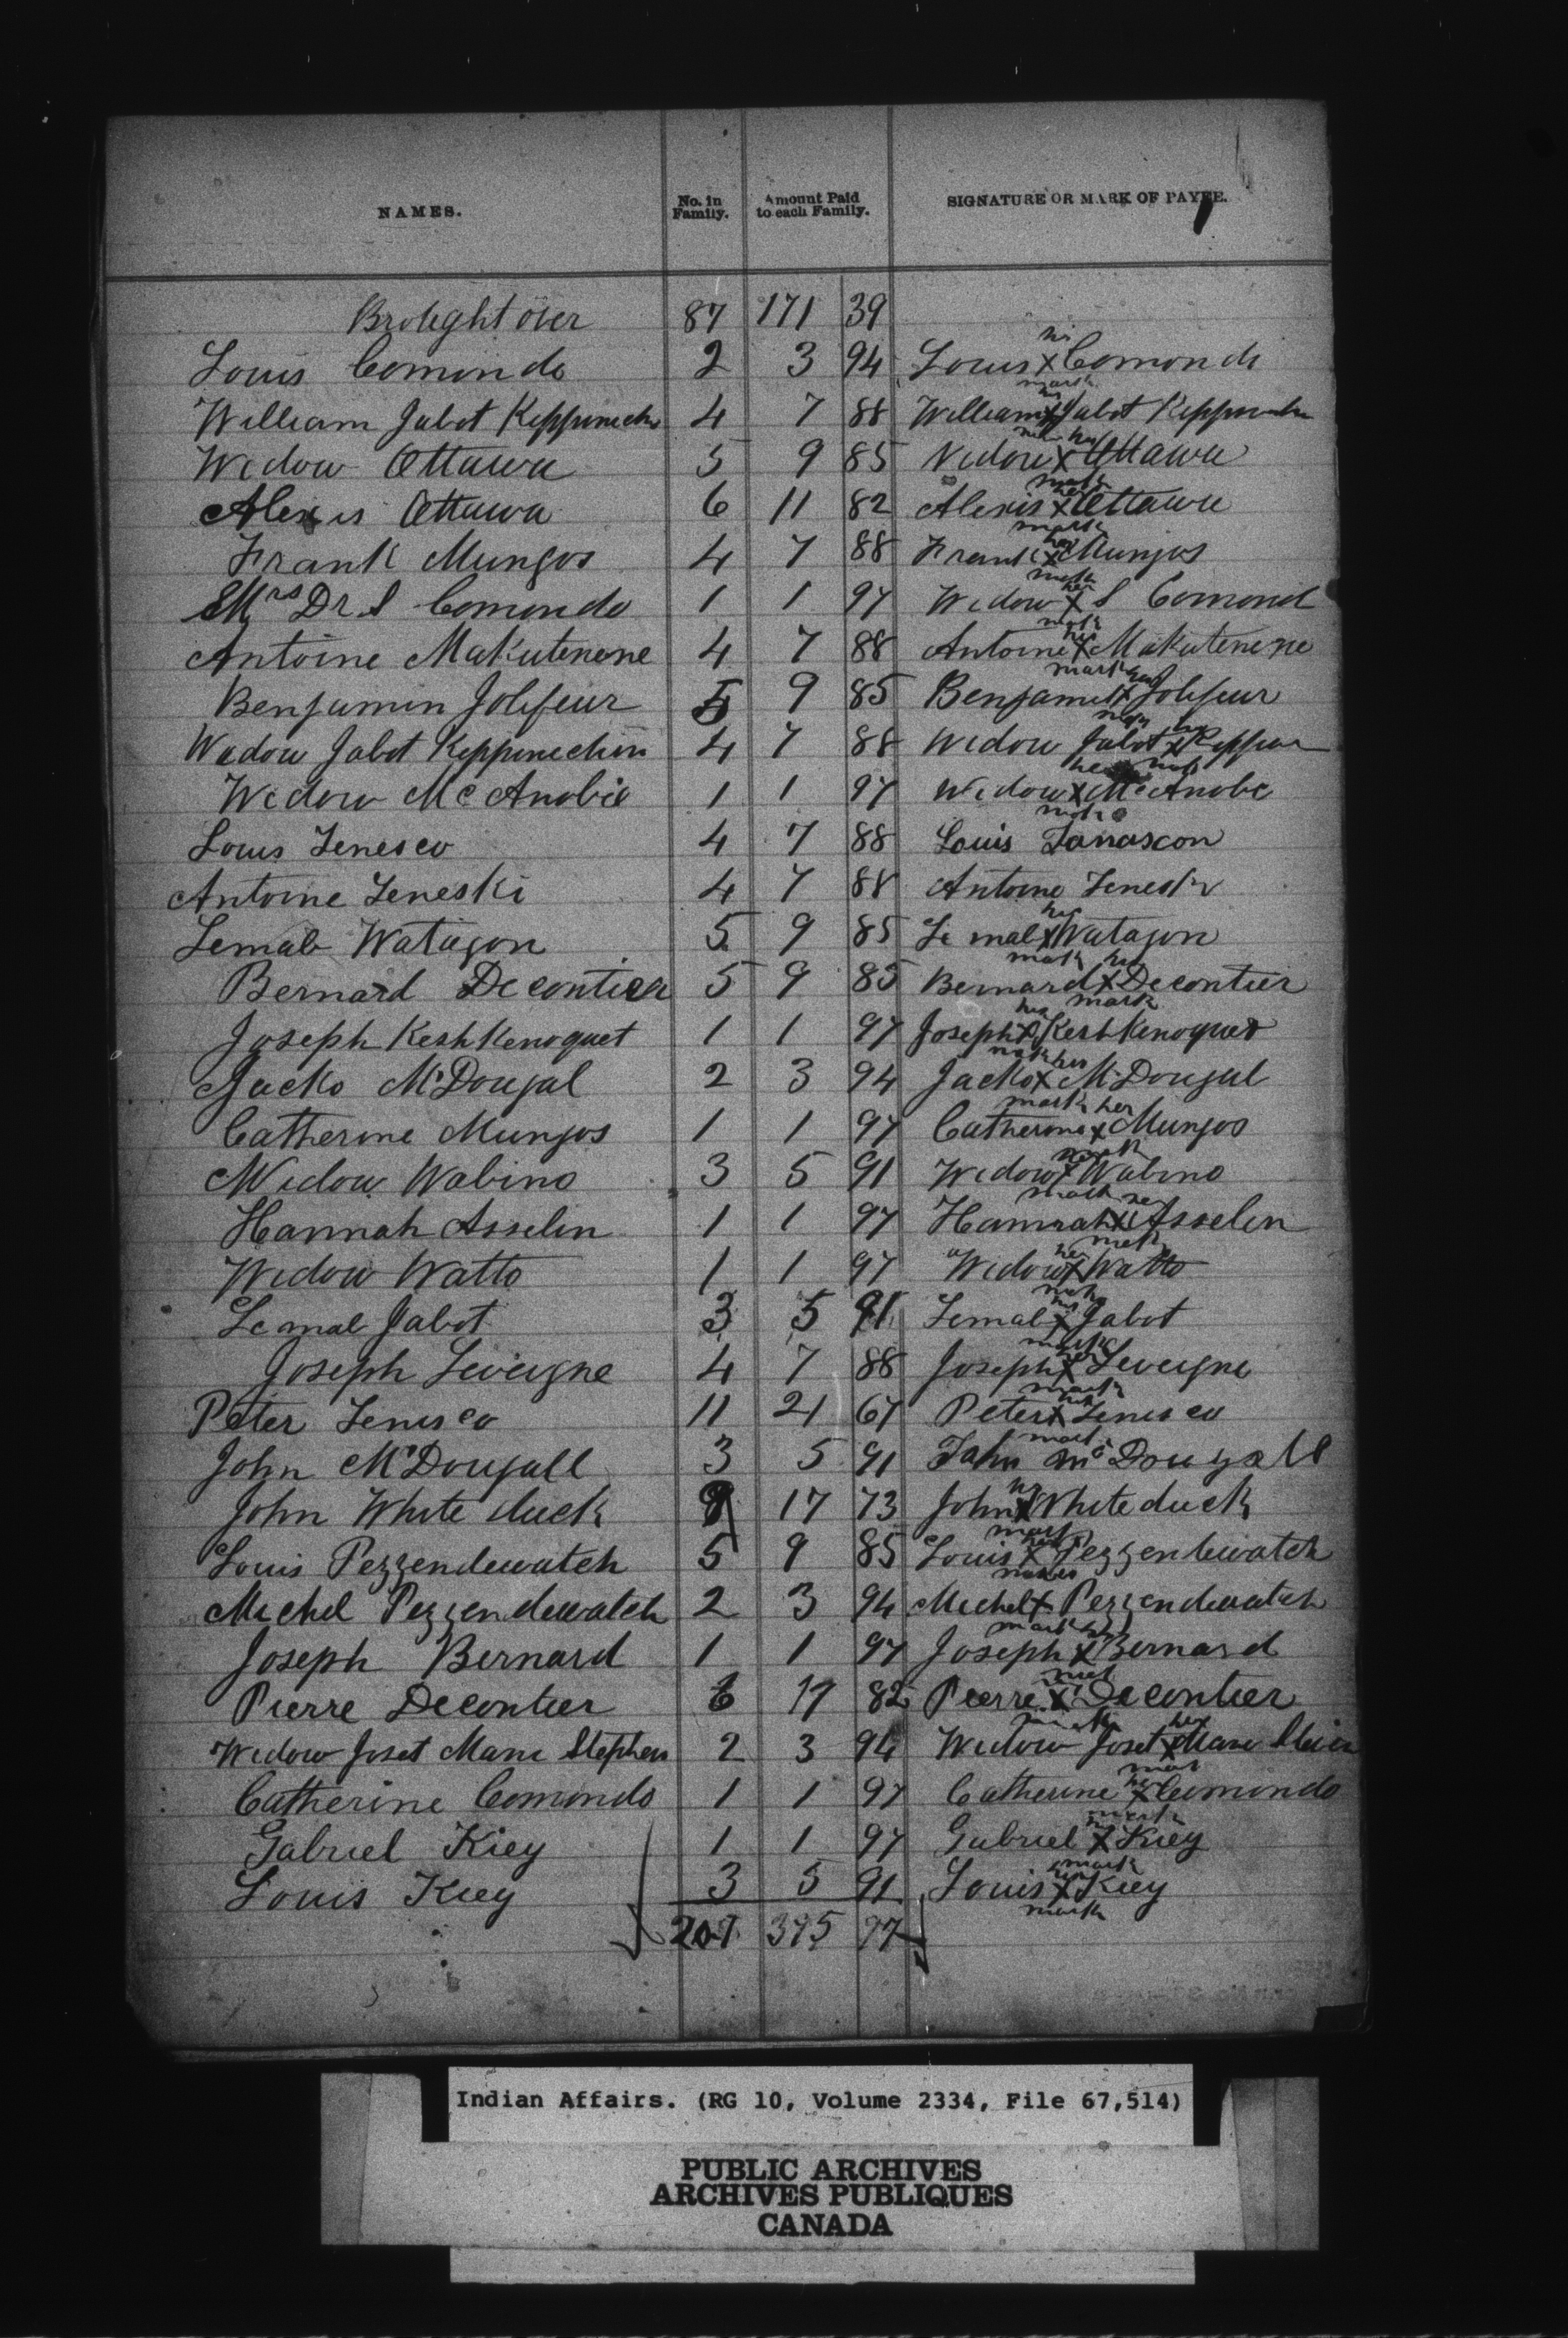 NAMES. No. in Family. Amount Paid to each Family. SIGNATURE OR MARK OF PAYEE.
Brought over 87 171 39
Louis Comondo 2 3 94 Louis his x mark Comondo
William Jabot Keppinech 4 7 88 William his x mark Jabot
Widow Ottawa 5 9 85 Widow her x mark Ottawa
Alexis Ottawa 6 11 82 Alexis his x mark Ottawa
Frank Mungos 4 7 88 Frank his x mark Mungos
Mrs Dr S Comondo 1 1 97 Widow her x mark S Comond
Antoine Makutenene 4 7 88 Antoine his x mark Makutenene
Benjamin Jolifeur 5 9 85 Benjamin his x mark Jolifeur
Widow Jabot Keppinechin 4 7 88 Widow Jabot her x mark
Widow McAnobie 1 1 97 Widow her x mark McAnobe
Louis Tenesco 4 7 88 Louis Tanascon
Antoine Teneski 4 7 88 Antoine Teneski
Lemab Watagon 5 9 85 Le mab his x mark Watagon
Bernard Decontier 5 9 85 Bernard his x mark Decontier
Joseph Keshkenoquet 1 1 97 Joseph his x mark Keshkenoquet
Jacko McDougal 2 3 94 Jacko his x mark McDougal
Catherine Mungos 1 1 97 Catherine her x mark Mungos
Widow Wabino 3 5 91 Widow x mark Wabino
Hannah Asselin 1 1 97 Hannah her x mark Asselin
Widow Watto 1 1 97 Widow her x mark Watto
Le mab Jabot 3 5 91 Lemab his x mark Jabot
Joseph Leveigne 4 7 88 Joseph his x mark Leveigne
Peter Tenisco 11 21 67 Peter his x mark Tenisco
John McDougall 3 5 91 John McDougall
John White duck 9 17 73 John his x mark White duck
Louis Pezzendewatch 5 9 85 Louis his x mark Pezzendewatch
Michel Pezzendewatch 2 3 94 Michel x mark Pezzendewatch
Joseph Bernard 1 1 97 Joseph his x mark Bernard
Pierre Decontier 6 11 82 Pierre his x mark Decontier
Widow Joset Mani Stephen 2 3 94 Widow Joset her x mark Mani
Catherine Comondo 1 1 97 Catherine her x mark Comondo
Gabriel Kiey 1 1 97 Gabriel his x mark Kiey
Louis Kiey 3 5 91 Louis his x mark Kiey
201 395 97
Indian Affairs. (RG 10, Volume 2334, File 67,514)
PUBLIC ARCHIVES
ARCHIVES PUBLIQUES
CANADA